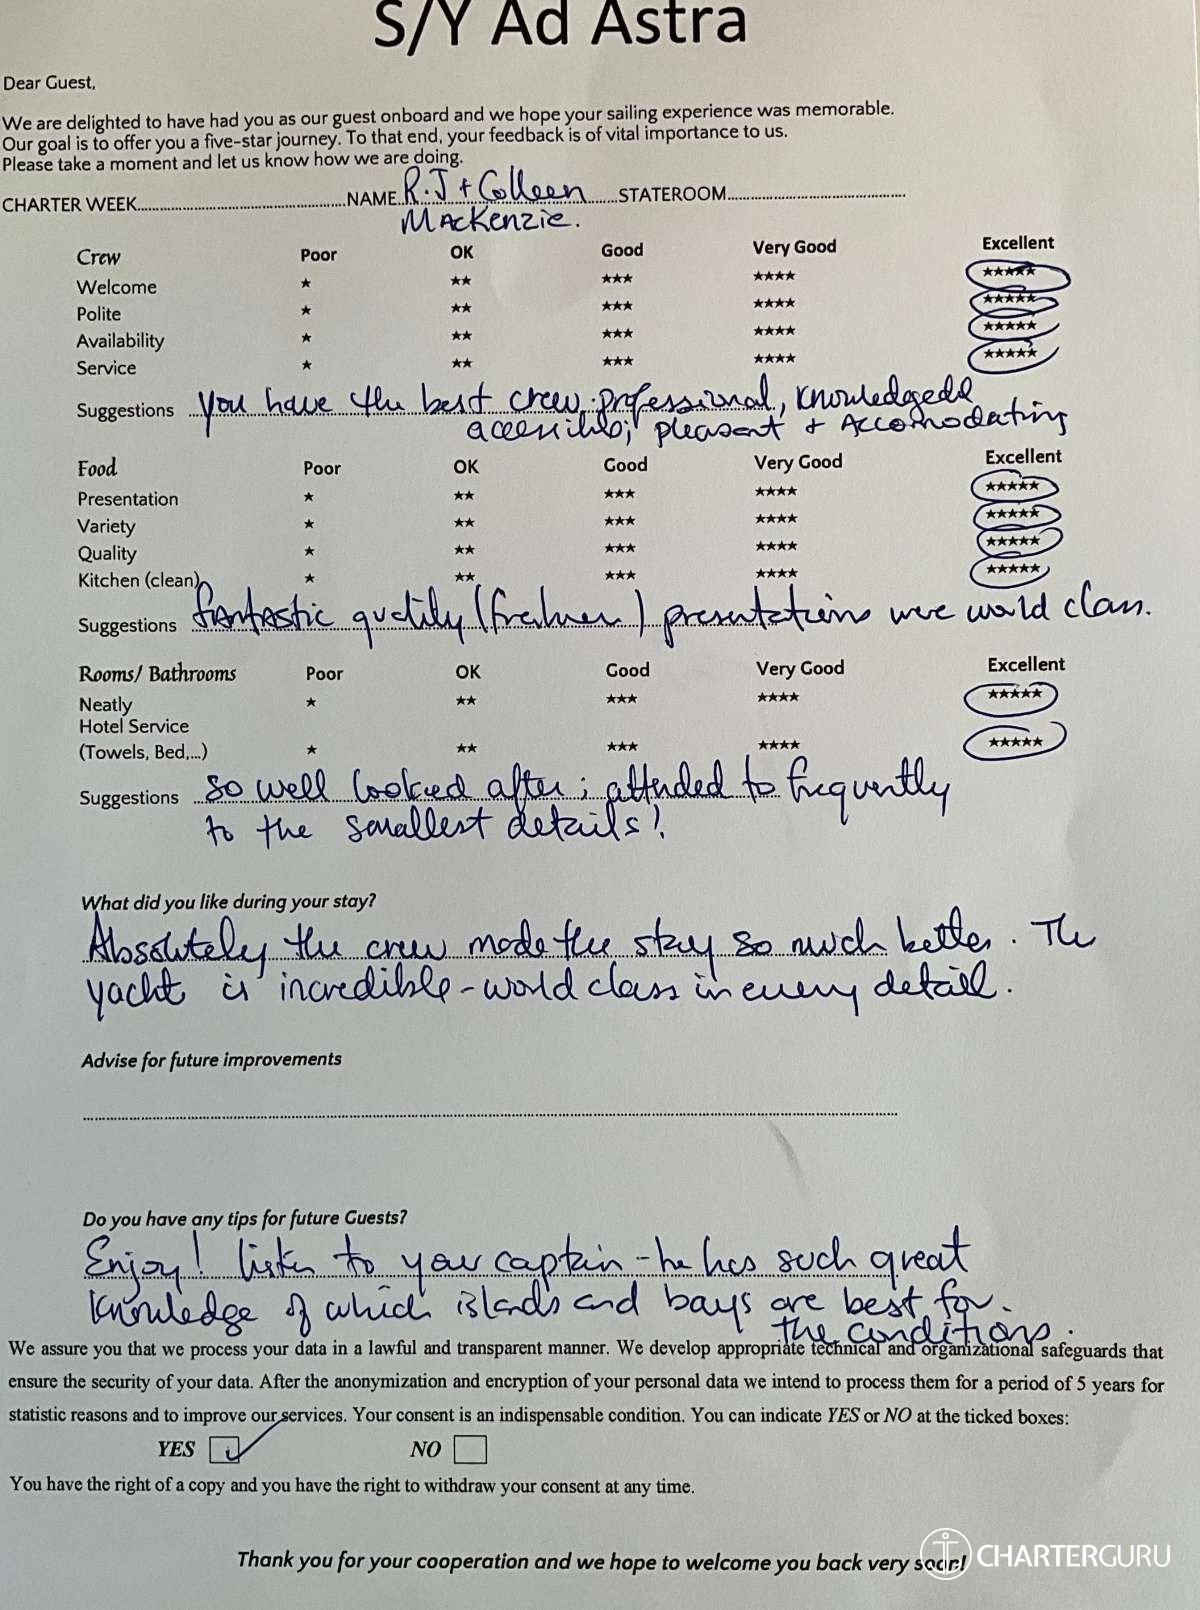 S/Y Ad Astra
Dear Guest,
We are delighted to have had you as our guest onboard and we hope your sailing experience was memorable.
Our goal is to offer you a five-star journey. To that end, your feedback is of vital importance to us.
Please take a moment and let us know how we are doing.
CHARTER WEEK..........NAME R.J + Colleen..........STATEROOM..........
MacKenzie.
Crew Poor OK Good Very Good Excellent
Welcome ★ ★★ ★★★ ★★★★ ★★★★★
Polite ★ ★★ ★★★ ★★★★ ★★★★★
Availability ★ ★★ ★★★ ★★★★ ★★★★★
Service ★ ★★ ★★★ ★★★★ ★★★★★
Suggestions You have the best crew. professional,
pleasant + Accomodating
Food Poor OK Good Very Good Excellent
Presentation ★ ★★ ★★★ ★★★★ ★★★★★
Variety ★ ★★ ★★★ ★★★★ ★★★★★
Quality ★ ★★ ★★★ ★★★★ ★★★★★
Kitchen (clean) ★ ★★ ★★★ ★★★★ ★★★★★
Suggestions fantastic quality presentations were world class.
Rooms/ Bathrooms Poor OK Good Very Good Excellent
Neatly ★ ★★ ★★★ ★★★★ ★★★★★
Hotel Service
(Towels, Bed,...) ★ ★★ ★★★ ★★★★ ★★★★★
Suggestions So well looked after; attended to frequently
to the smallest details!
What did you like during your stay?
Absolutely the crew made the stay so much better. The
yacht is incredible - world class in every detail.
Advise for future improvements
Do you have any tips for future Guests?
Enjoy! listen to your captain - he has such great
Knowledge of which islands and bays are best for
the conditions.
We assure you that we process your data in a lawful and transparent manner. We develop appropriate technical and organizational safeguards that
ensure the security of your data. After the anonymization and encryption of your personal data we intend to process them for a period of 5 years for
statistic reasons and to improve our services. Your consent is an indispensable condition. You can indicate YES or NO at the ticked boxes:
YES NO
You have the right of a copy and you have the right to withdraw your consent at any time.
Thank you for your cooperation and we hope to welcome you back very soon!
CHARTERGURU